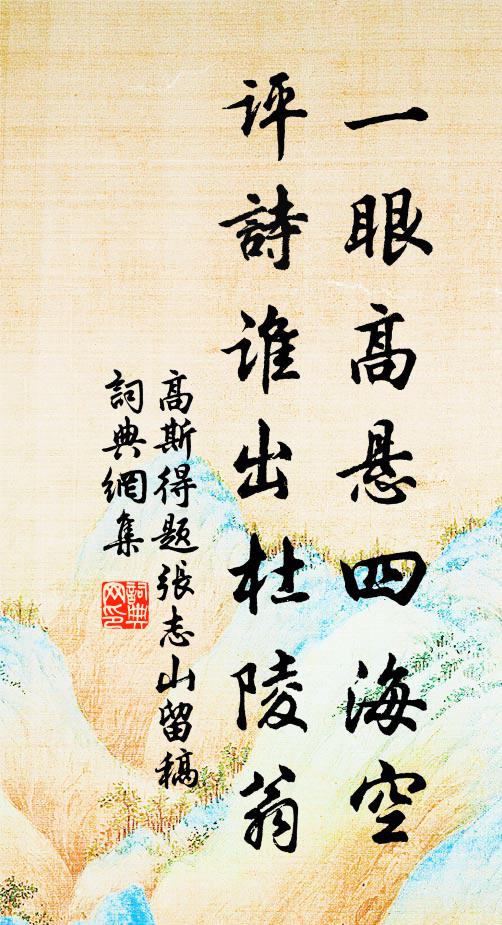 一眼高悬四海空
评詩谁出杜陵翁
高斯得題張志山留稿
詞典網集
詞典網印